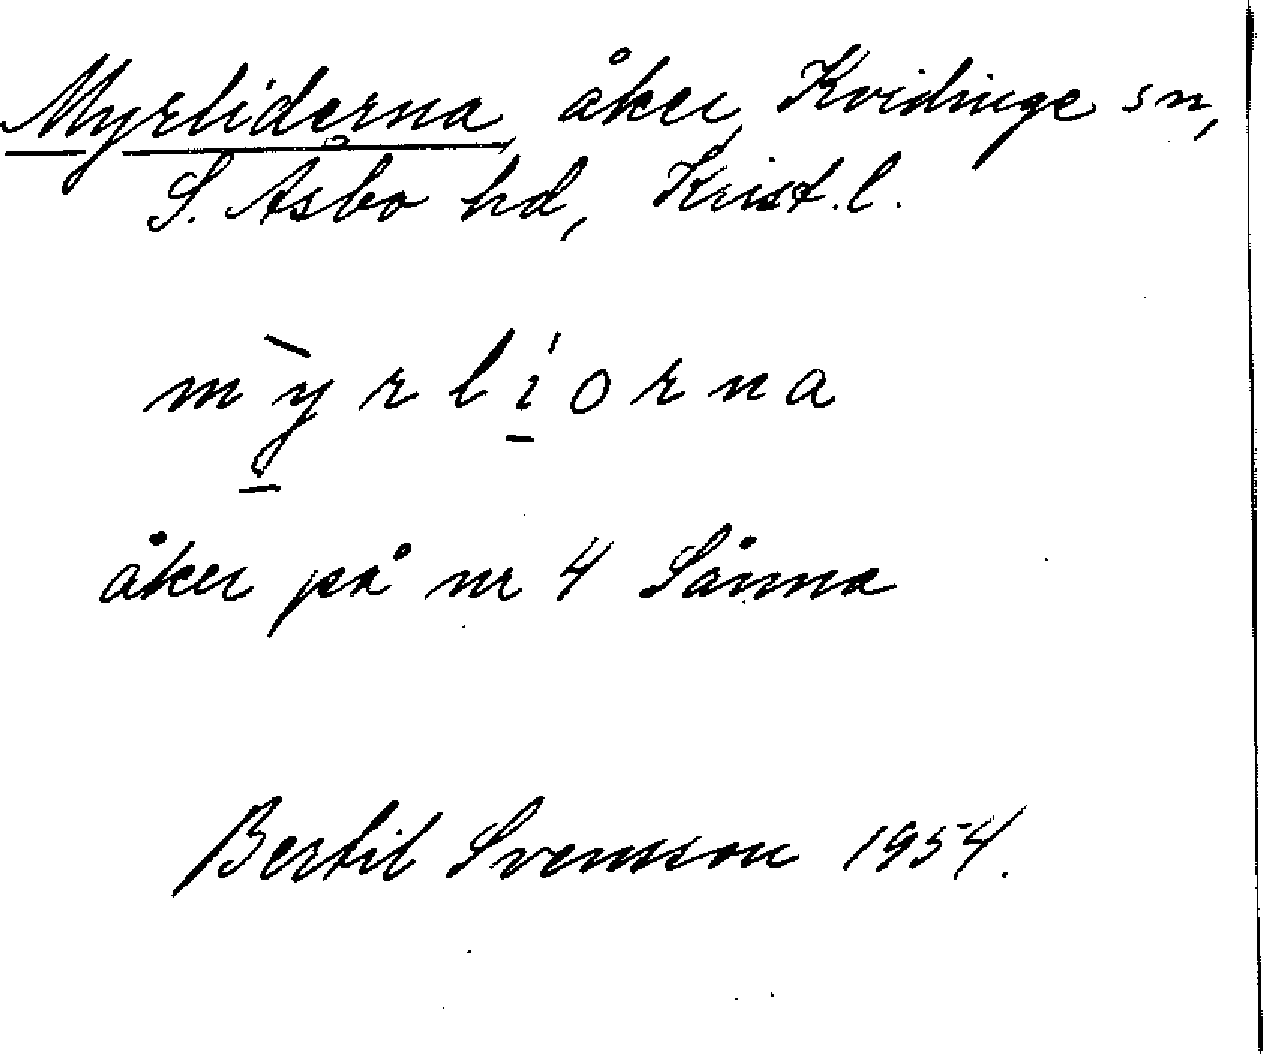 Myrliderna, åker, Kvidinge sn,
S. Åsbo hd, Krist. l.
mỳrlíorna
åker på nr 4 Sånna
Bertil Svensson 1954.